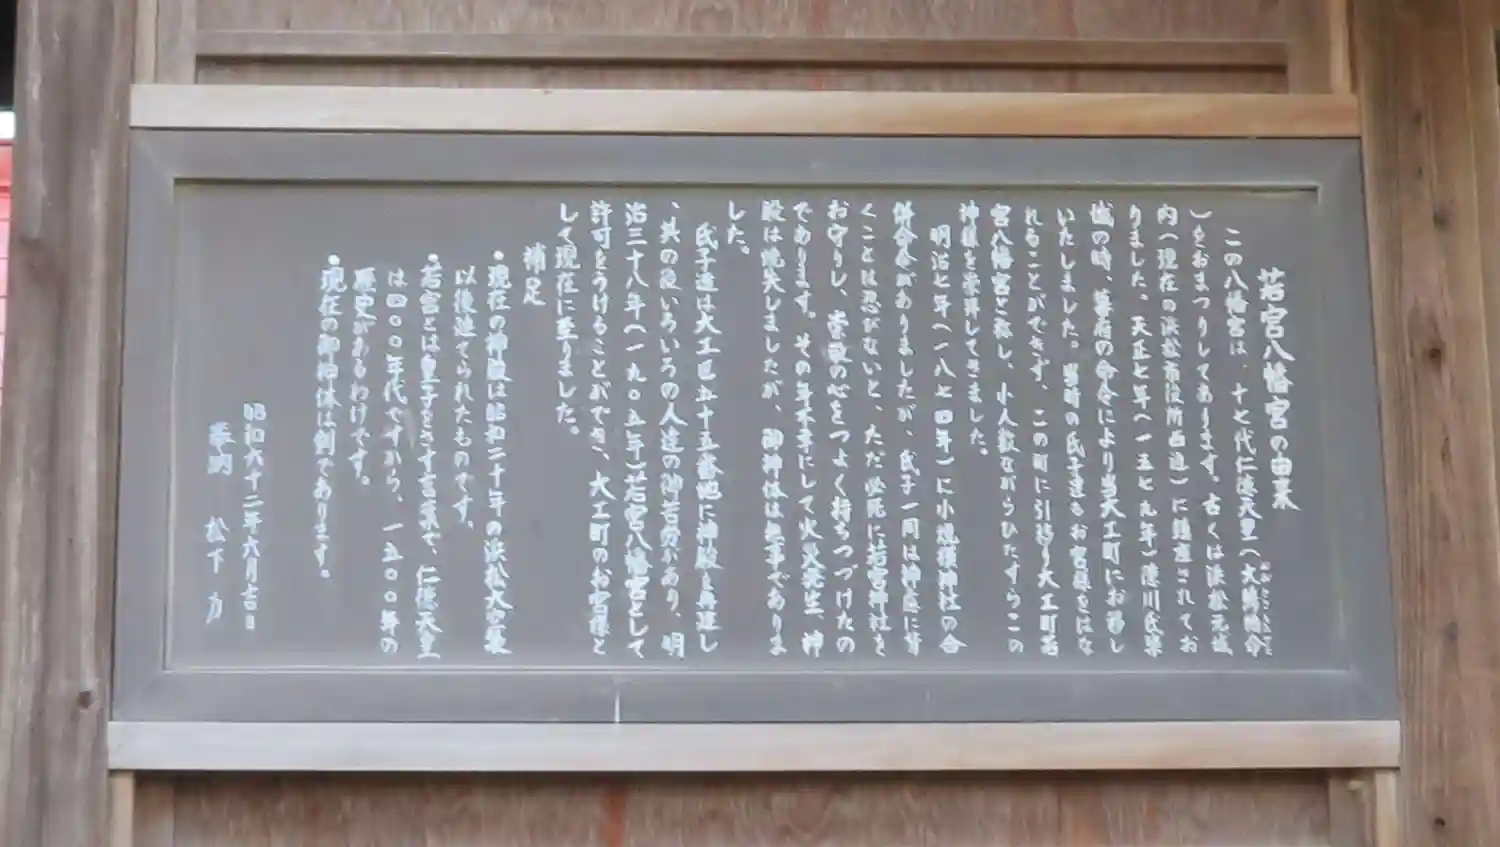 若宮八幡宮の由来
この八幡宮は、十七代仁徳天皇(大鷦鷯命
)をおまつりしてあります。古くは浜松元城
内(現在の浜松市役所西辺)に鎮座されてお
りました。天正七年(一五七九年)徳川氏築
城の時、幕府の命令により当大工町にお移し
いたしました。当時の氏子達もお宮様をはな
れることができず、この町に引移り大工町若
宮八幡宮と称し、小人数ながらひたすらこの
神様を崇拝してきました。
明治七年(一八七四年)に小規模神社の合
併命令がありましたが、氏子一同は神慮に背
くことは忍びないと、ただ密に若宮神社を
お守りし、崇敬の心をつよく持ちつづけたの
であります。その年不幸にして火災発生、神
殿は焼失しましたが、御神体は無事でありま
した。
氏子達は大工町五十五番地に神殿を再建し
、其の後いろいろの人達の御苦労があり、明
治三十八年(一九〇五年)若宮八幡宮として
許可をうけることができ、大工町のお宮様と
して現在に至りました。
補足
•現在の神殿は昭和二十年の浜松大空襲
以後建てられたものです。
•若宮とは皇子をさす言葉で、仁徳天皇
は四〇〇年代ですから、一五〇〇年の
歴史があるわけです。
•現在の御神体は剣であります。
昭和六十二年六月吉日
松下 力